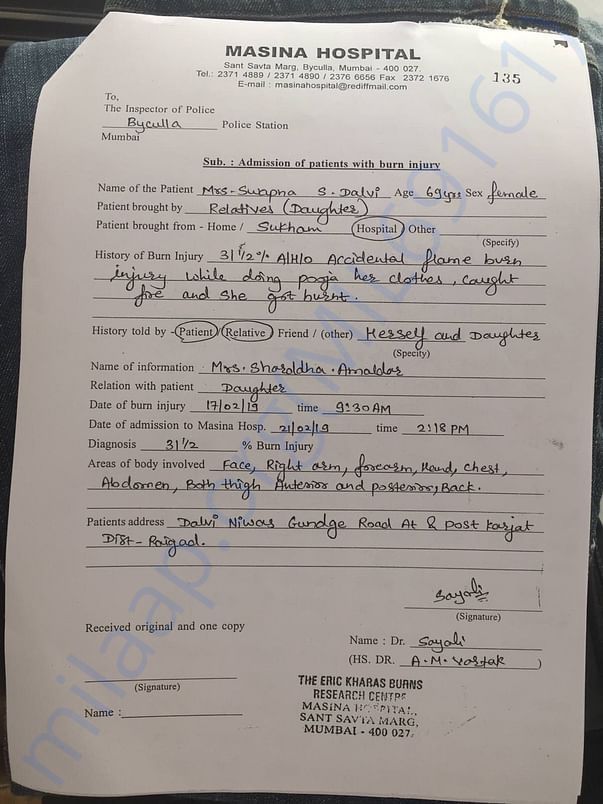 MASINA HOSPITAL
Sant Savta Marg, Byculla, Mumbai - 400 027.
Tel.: 2371 4889 / 2371 4890 / 2376 6656 Fax 2372 1676
E-mail : masinahospital@rediffmail.com
135
To,
The Inspector of Police
Byculla Police Station
Mumbai
Sub. : Admission of patients with burn injury
Name of the Patient Mrs. Swapna S. Dalvi Age 69yrs Sex female
Patient brought by Relatives (Daughter)
Patient brought from - Home / Sukham Hospital Other
(Specify)
History of Burn Injury 31 1/2 % A/H/o Accidental flame burn
injury while doing pooja her clothes, caught
fire and she got burnt.
History told by - Patient / Relative Friend / (other) Herself and Daughter
(Specify)
Name of information Mrs. Sharddha. Amaldar
Relation with patient Daughter
Date of burn injury 17/02/19 time 9:30AM
Date of admission to Masina Hosp. 21/02/19 time 2:18 PM
Diagnosis 31 1/2 % Burn Injury
Areas of body involved Face, Right arm, forearm, Hand, chest,
Abdomen, Both thigh Anterior and posterior, Back.
Patients address Dalvi Niwas Gundge Road At & post Karjat
Dist - Raigad.
Sayali
(Signature)
Received original and one copy
Name : Dr. Sayali
(HS. DR. A.M. Vartak )
(Signature)
Name :
THE ERIC KHARAS BURNS
RESEARCH CENTRE
MASINA HOSPITAL,
SANT SAVTA MARG,
MUMBAI - 400 027.